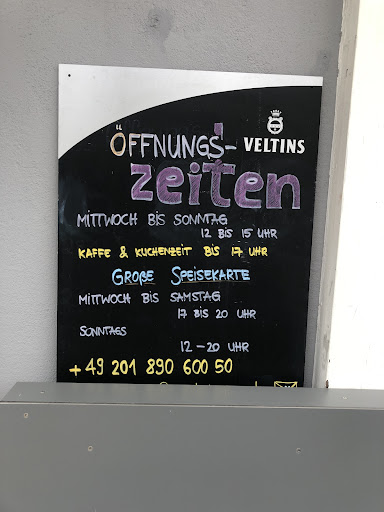 VELTINS
ÖFFNUNGS-
zeiten
MITTWOCH BIS SONNTAG
12 BIS 15 UHR
KAFFE & KUCHENZEIT BIS 17 UHR
GROßE SPEISEKARTE
MITTWOCH BIS SAMSTAG
17 BIS 20 UHR
SONNTAGS
12-20 UHR
+49 201 890 600 50